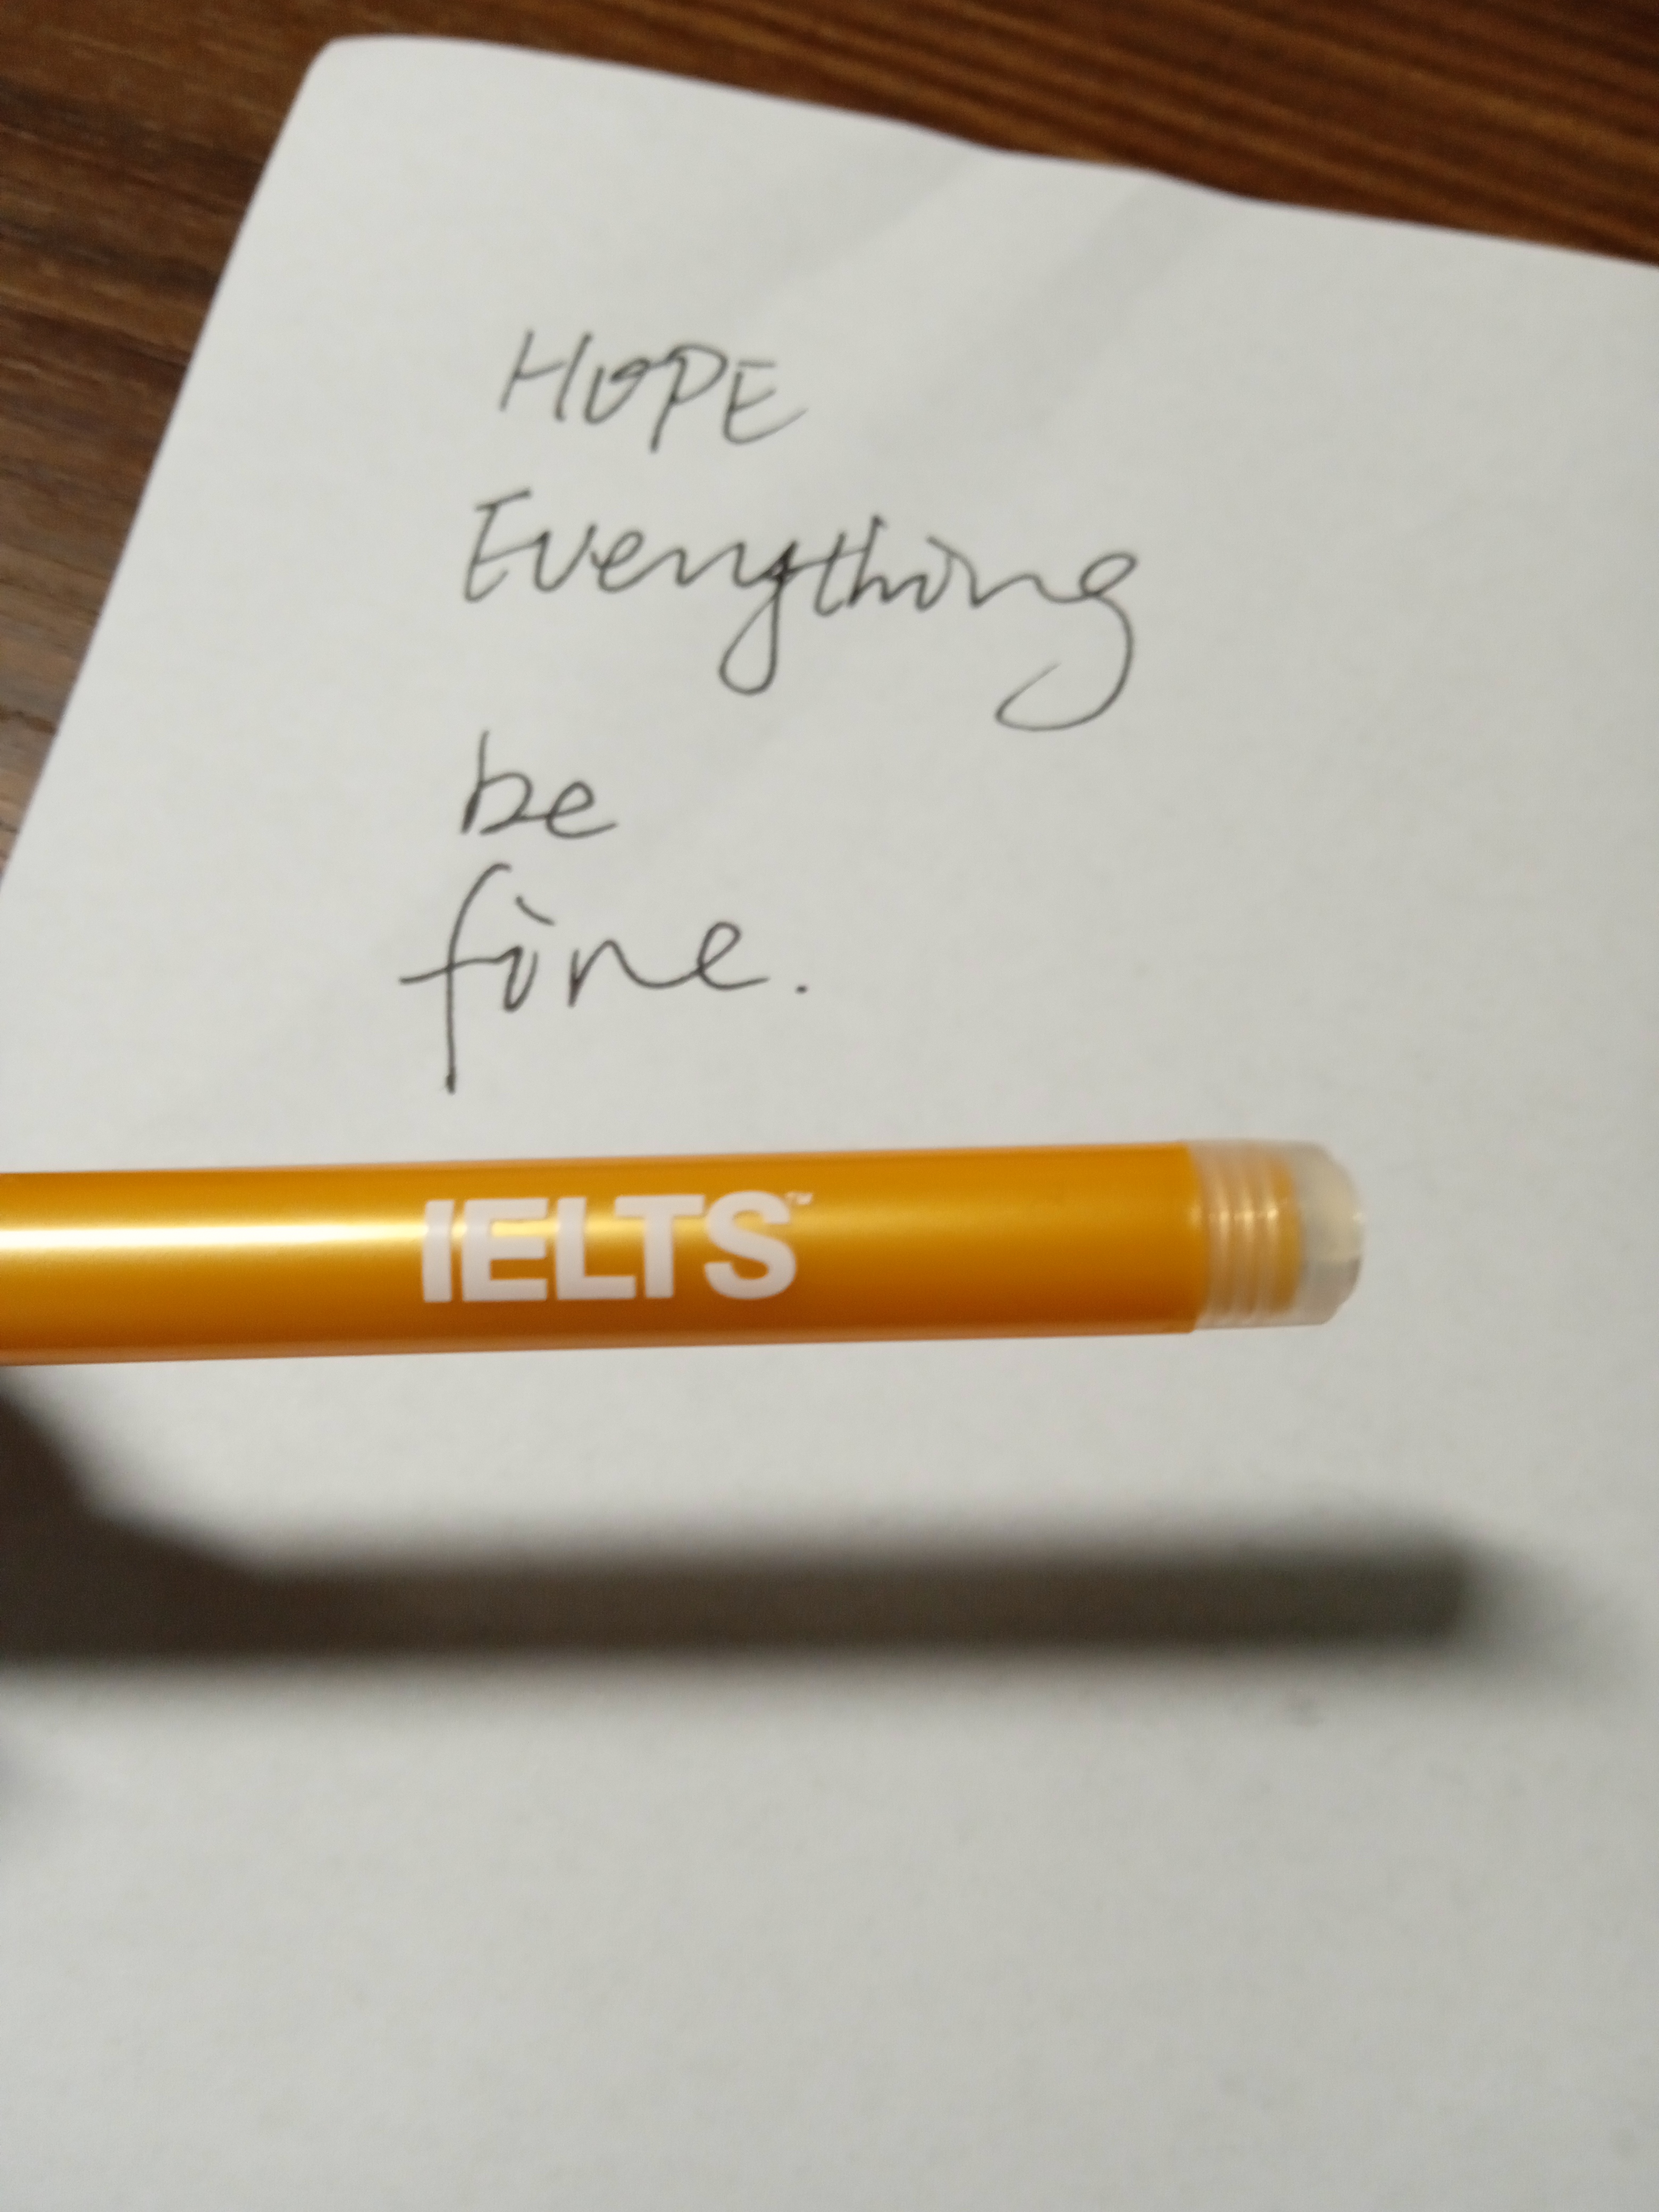 HOPE
Everything
be
fine.
IELTS™